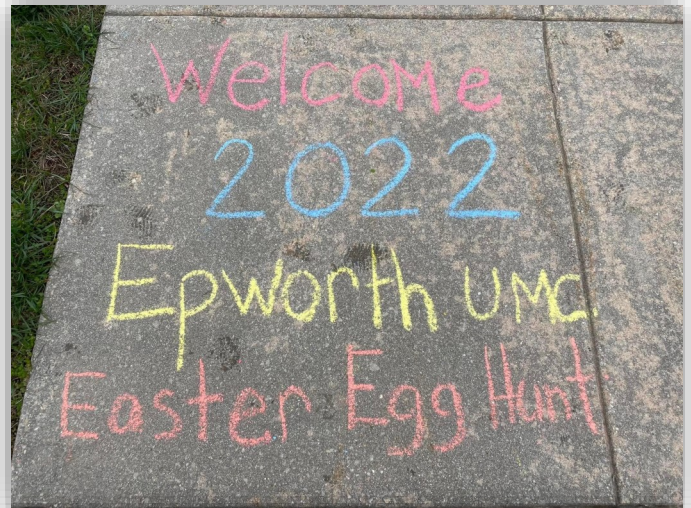 Welcome
2022
Epworth UMC
Easter Egg Hunt